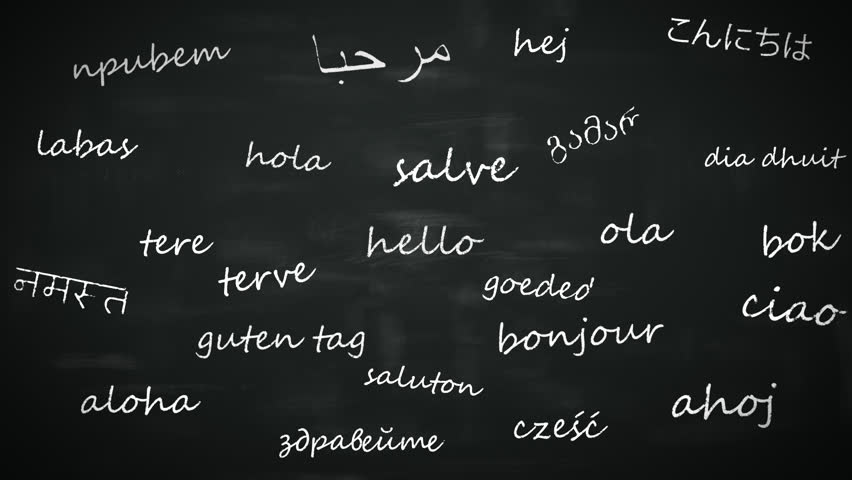 привет
مرحبا
hej
こんにちは
labas
hola
salve
dia dhuit
tere
hello
ola
bok
नमस्त
terve
goededag
ciao
guten tag
bonjour
saluton
aloha
ahoj
здравейте
cześć